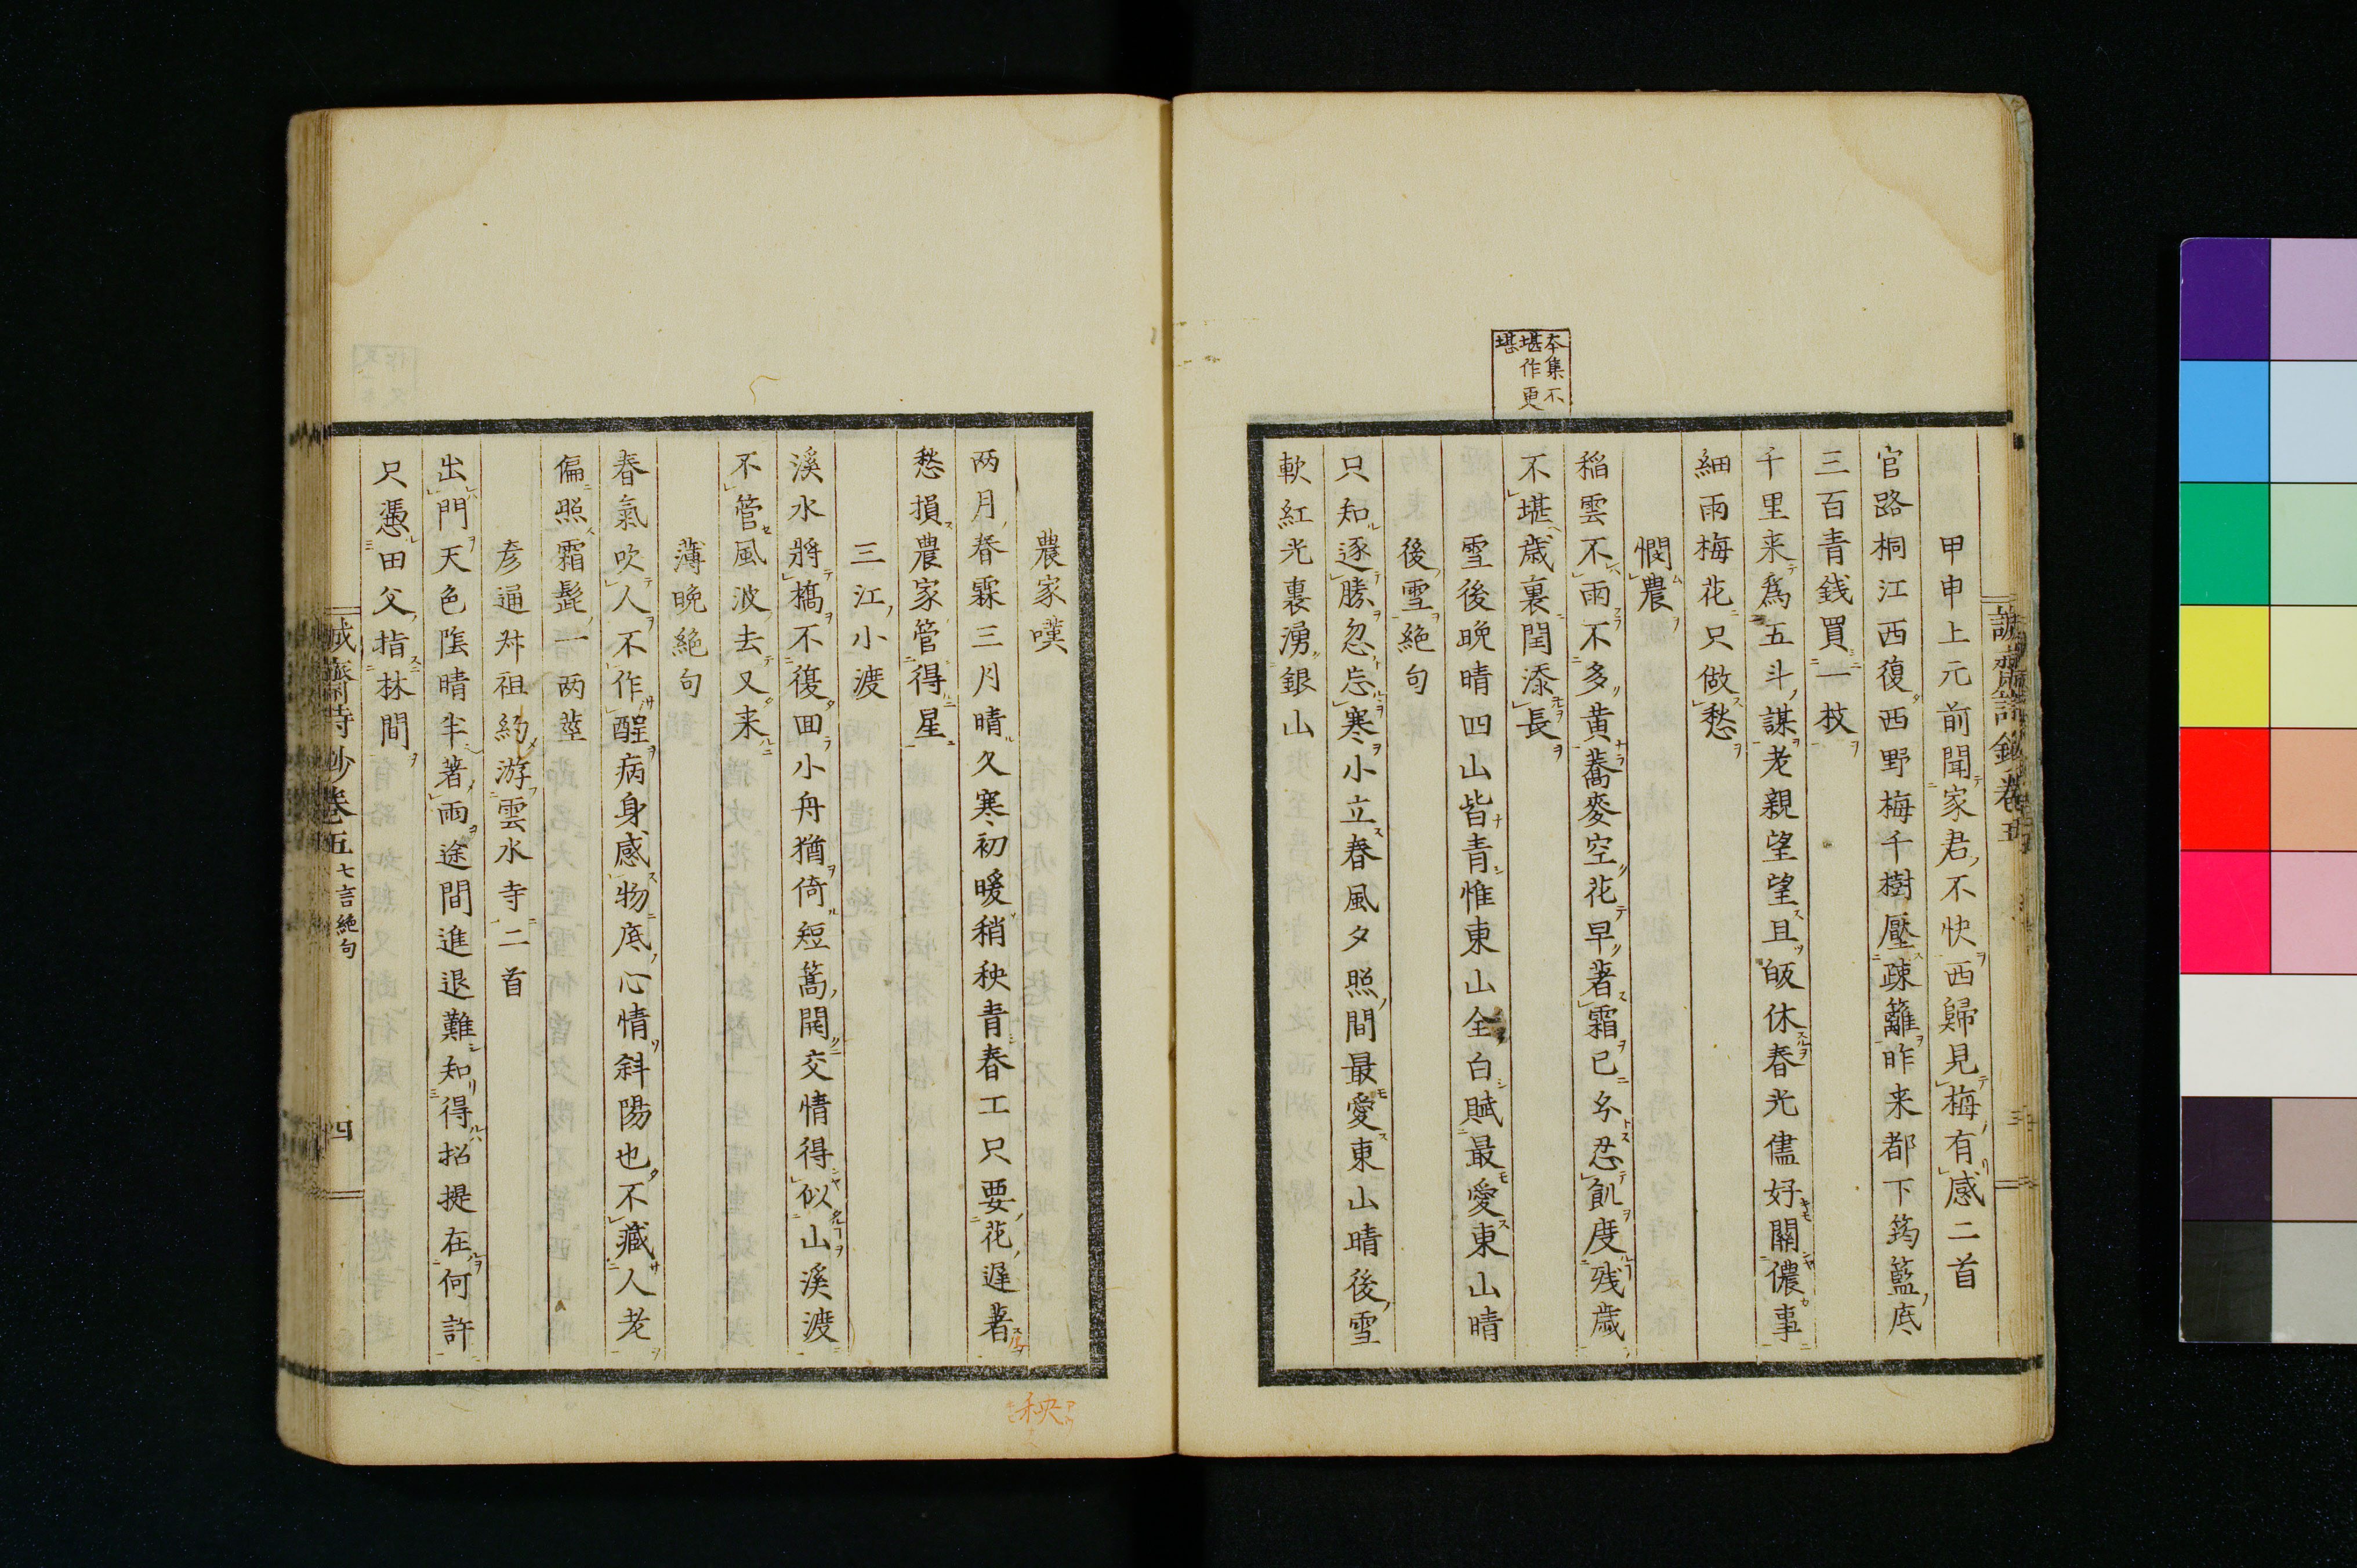 甲申上元前聞家君不快西歸見梅有感二首
官路桐江西復西野梅千樹壓疎籬昨来都下筠籃底
三百青銭買一枝
千里来為五斗謀老親望望且皈休春光儘好關儂事
細雨梅花只做愁
憫農
稲雲不雨不多黄蕎麥空花早著霜已分忍飢度残歳
不堪歳裏閏添長
本集不
堪作更
堪
雪後晩晴四山皆青惟東山全白賦最愛東山晴
後雪絶句
只知逐勝忽忘寒小立春風夕照間最愛東山晴後雪
軟紅光裏湧銀山
農家嘆
两月春霖三月晴久寒初暖稍秧青春工只要花遅著
愁損農家管得星
三江小渡
溪水將橋不復囬小舟猶倚短篙開交情得似山溪渡
不管風波去又来
薄晩絶句
春氣吹人不作醒病身感物底心情斜陽也不藏人老
偏照霜髭一两莖
彦通叔祖約游雲水寺二首
出門天色隂晴半著雨途間進退難知得招提在何許
只憑田父指林間
誠齋詩鈔卷五 七言絶句
四
秧